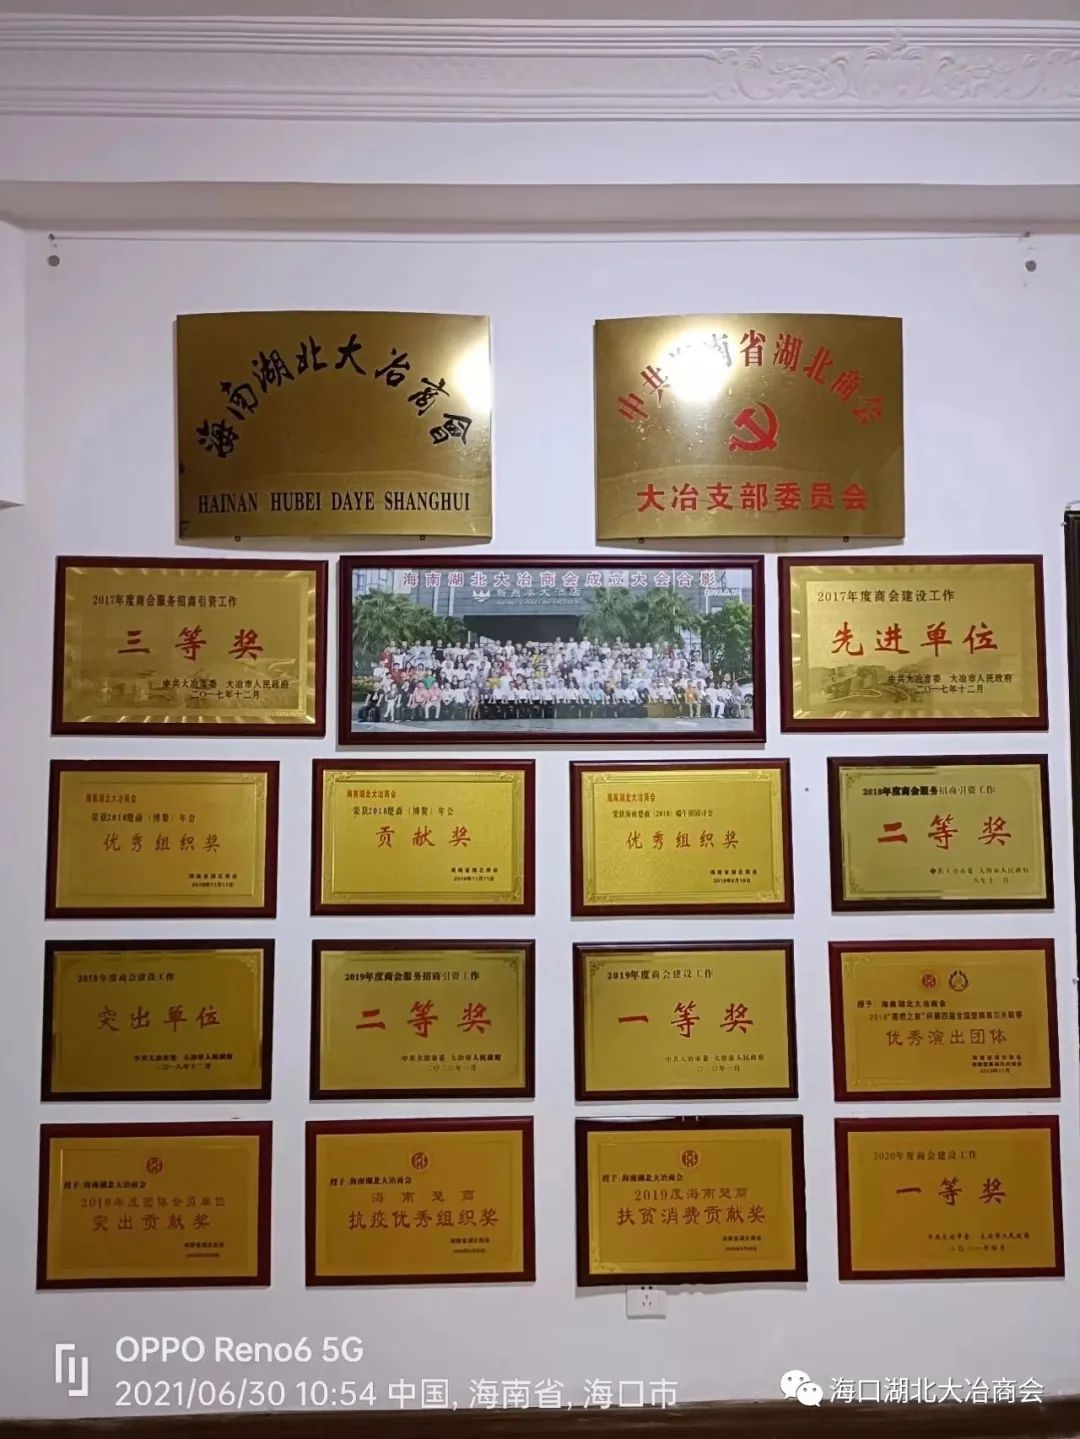 海南湖北大冶商會
HAINAN HUBEI DAYE SHANGHUI
中共海南省湖北商会
大冶支部委员会
2017年度商会服务招商引资工作
三等奖
中共大冶市委 大冶市人民政府
二〇一七年十二月
海南湖北大冶商会成立大会合影
2017年度商会建设工作
先进单位
中共大冶市委 大冶市人民政府
二〇一七年十二月
海南湖北大冶商会
荣获2018楚商（博鳌）年会
优秀组织奖
海南省湖北商会
2018年11月11日
海南湖北大冶商会
荣获2018楚商（博鳌）年会
贡献奖
海南省湖北商会
2018年11月11日
海南湖北大冶商会
荣获海南楚商（2018）端午团拜会
优秀组织奖
海南省湖北商会
2018年6月18日
2018年度商会服务招商引资工作
二等奖
中共大冶市委 大冶市人民政府
2018年度商会建设工作
突出单位
中共大冶市委 大冶市人民政府
二〇一八年十二月
2019年度商会服务招商引资工作
二等奖
中共大冶市委 大冶市人民政府
二〇二〇年一月
2019年度商会建设工作
一等奖
中共大冶市委 大冶市人民政府
二〇二〇年一月
授予：海南湖北大冶商会
优秀演出团体
2019年11月
授予：海南湖北大冶商会
2019年度团体会员单位
突出贡献奖
海南省湖北商会
授予：海南湖北大冶商会
海南楚商
抗疫优秀组织奖
海南省湖北商会
授予：海南湖北大冶商会
2019度海南楚商
扶贫消费贡献奖
海南省湖北商会
2020年度商会建设工作
一等奖
中共大冶市委 大冶市人民政府
OPPO Reno6 5G
2021/06/30 10:54 中国, 海南省, 海口市
海口湖北大冶商会